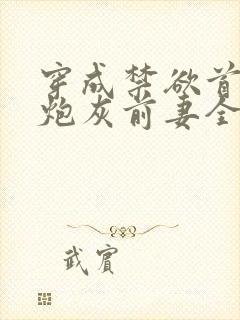 穿成禁欲首
炮灰前妻全
武宾